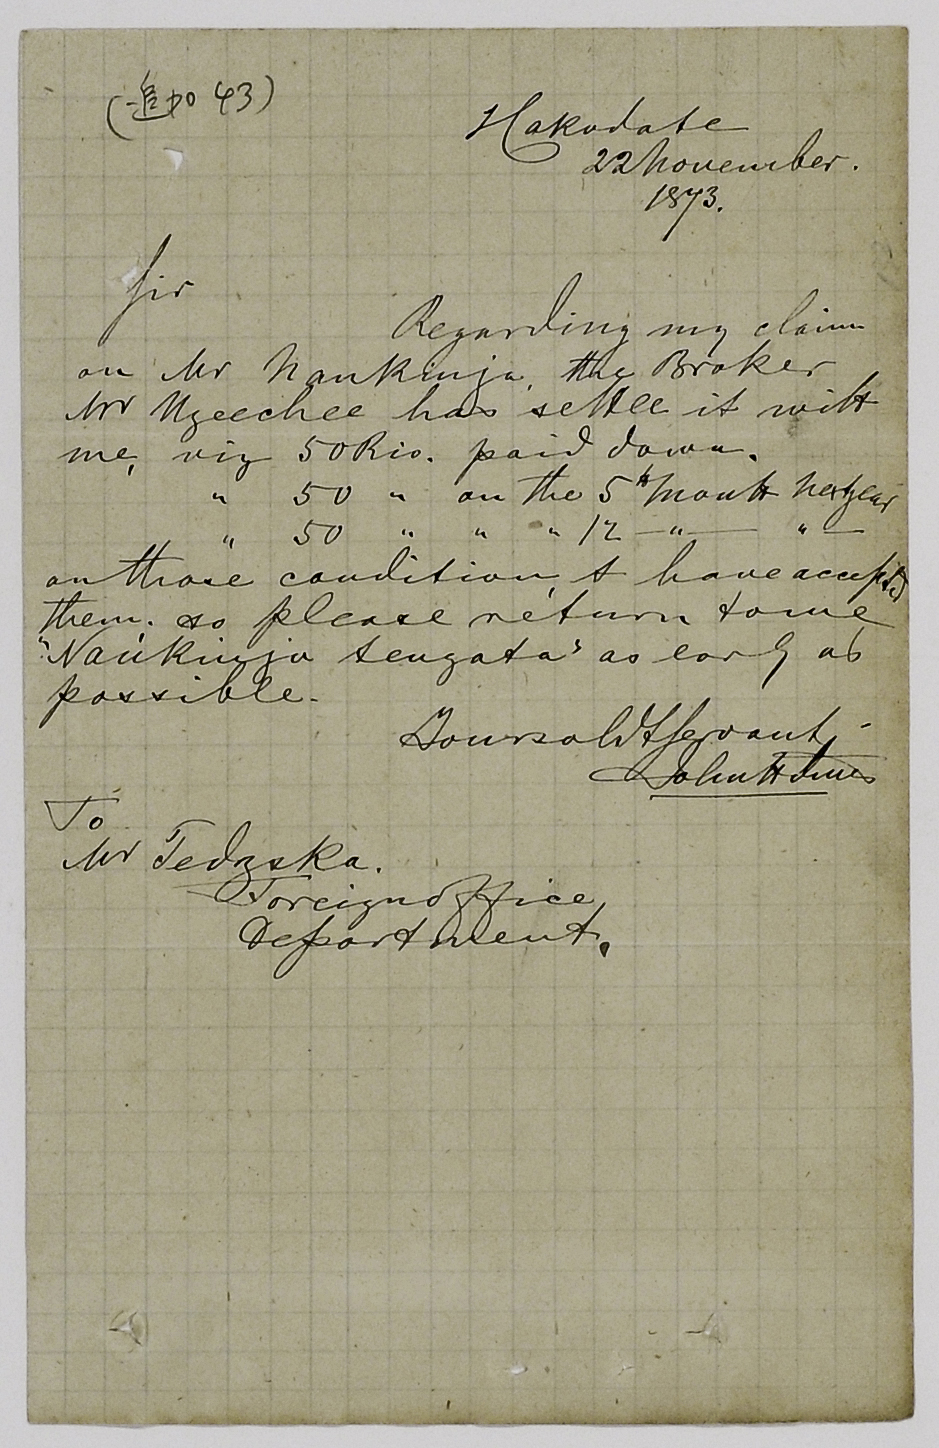 (追加 43)
Hakodate
22 November.
1873.
Sir
Regarding my claim
on Mr Nankinja, the Broker
Mr Ugeechee has settle it with
me, viz 50 Rio. paid down.
" 50 " on the 5th Month next year
" 50 " " " 12 — " — " —
on those condition I have accepted
them. so please return to me
"Nankinja tengata" as early as
possible.
Yours obdt Servant
John H
To
Mr Tedzska.
Foreign Office
Department.